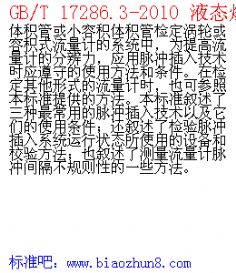 GB/T 17286.3-2010 液态
体积管或小容积体积管检定涡轮或
容积式流量计的系统中，为提高流
量计的分辨力，应用脉冲插入技术
时应遵守的使用方法和条件。在检
定其他形式的流量计时，也可参照
本标准提供的方法。本标准叙述了
三种最常用的脉冲插入技术以及它
们的使用条件；还叙述了检验脉冲
插入系统运行状态所使用的设备和
校验方法；也叙述了测量流量计脉
冲间隔不规则性的一些方法。
标准吧：www.biaozhun8.com